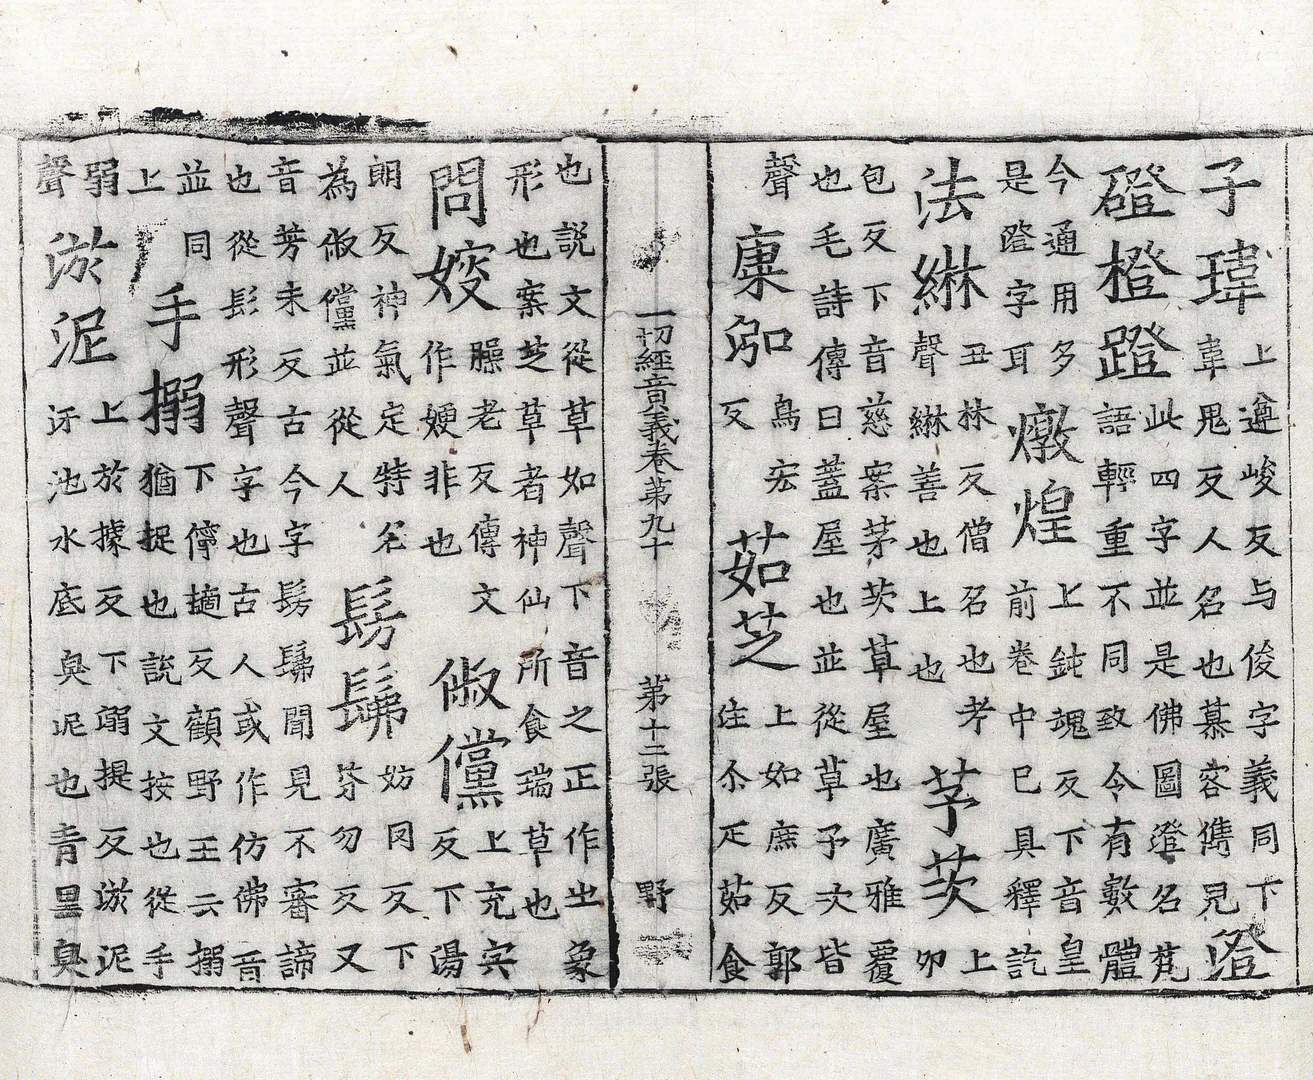 子瑋上遵峻反与俊字義同下韋鬼反人名也慕容儁見澄
磴橙蹬此四字並是佛圖澄名梵語輕重不同致令有數體
今通用多是蹬字耳燉煌上鈍魂反下音皇前卷中已具釋訖
法綝丑林反僧名也考聲綝善也上也芓茨上卯
包反下音慈案茅茨草屋也廣雅覆也毛詩傳曰蓋屋也並從草予次皆
聲康泓烏宏反茹芝上如庶反郭注尒疋茹食
一切經音義卷第九十 第十二張 野
也說文從草如聲下音之正作㞢象形也案芝草者神仙所食瑞草也
問㛐臊老反傳文作嫂非也俶儻上充宍反下湯
朗反神氣定特名為俶儻並從人髣髴妨罔反下芬勿反又
音芳未反古今字髣髴聞見不審諦也從髟形聲字也古人或作仿佛音
並同上手搦下儜摘反顧野王云搦猶捉也說文按也從手
弱聲淤泥上於據反下溺提反淤泥汙池水底臭泥也青黑臭